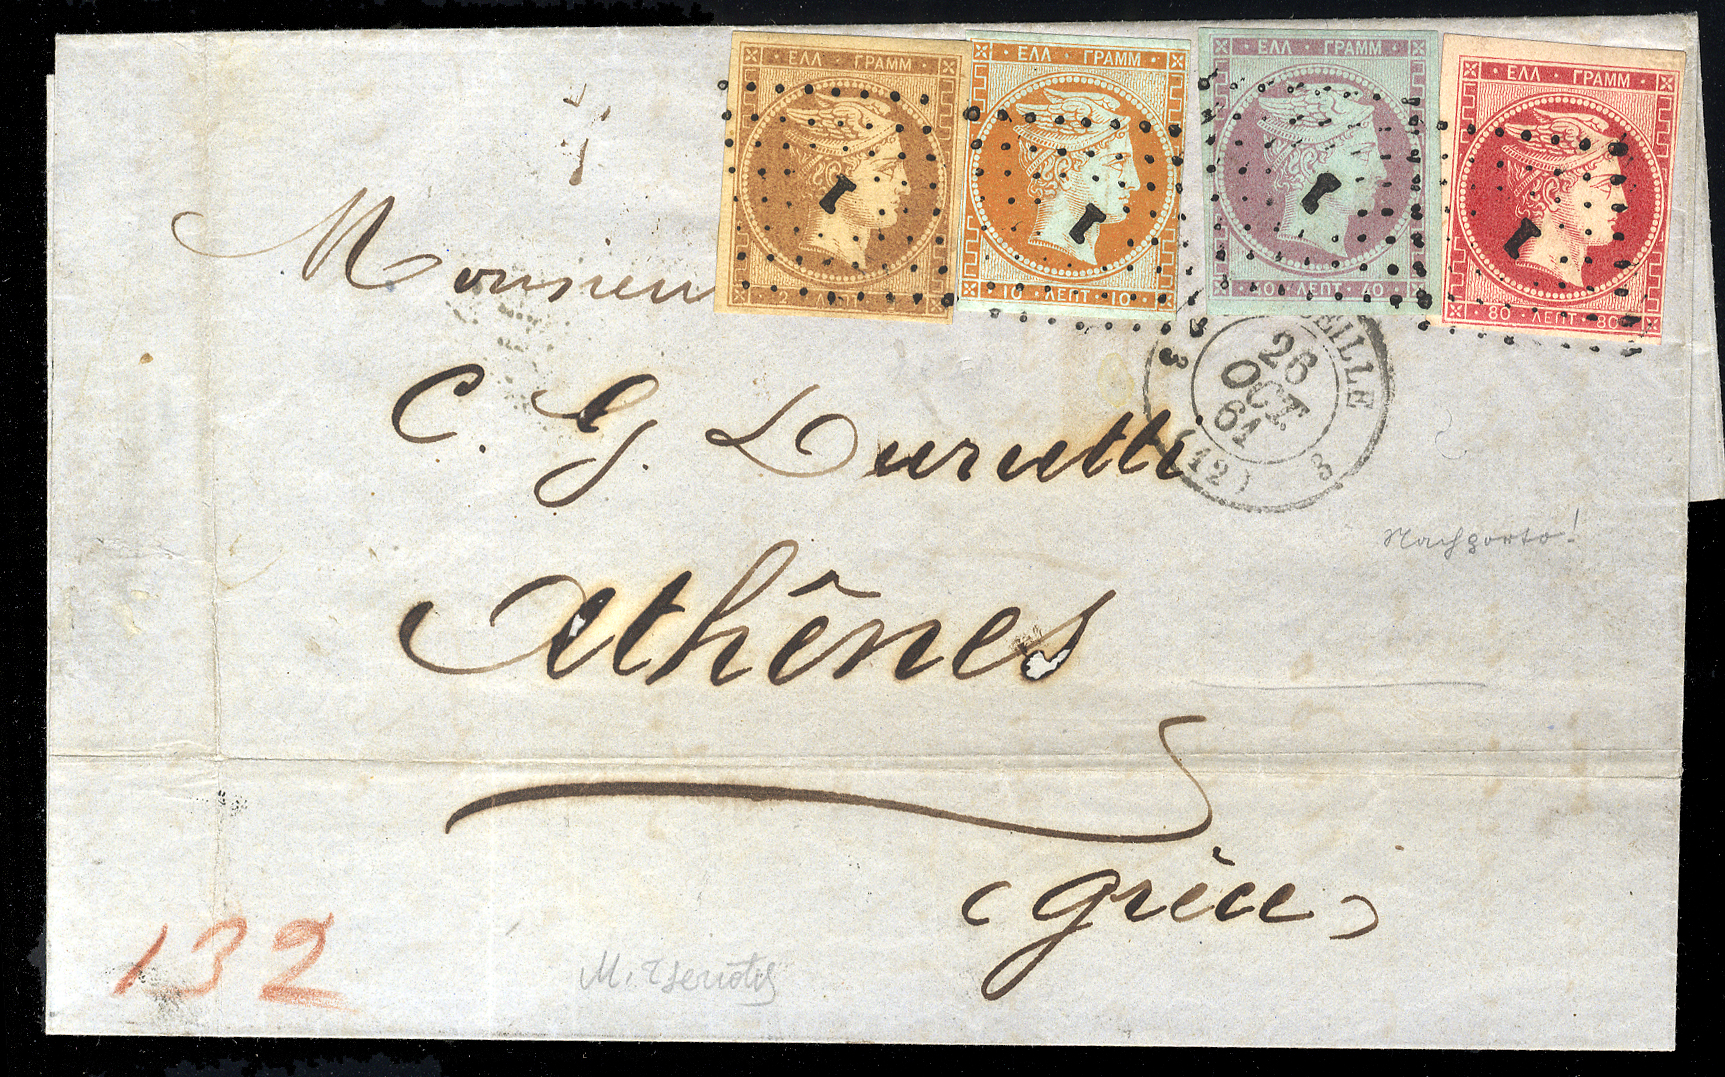 ΕΛΛ · ΓΡΑΜΜ
2 · ΛΕΠΤ
ΕΛΛ · ΓΡΑΜΜ
10 · ΛΕΠΤ · 10
ΕΛΛ · ΓΡΑΜΜ
40 · ΛΕΠΤ · 40
ΕΛΛ · ΓΡΑΜΜ
80 · ΛΕΠΤ · 80
1
1
1
1
Monsieur
EILLE
26
OCT.
61
(12)
3
3
C. G. Durutti
Nachporto!
Athênes
(Grèce)
132